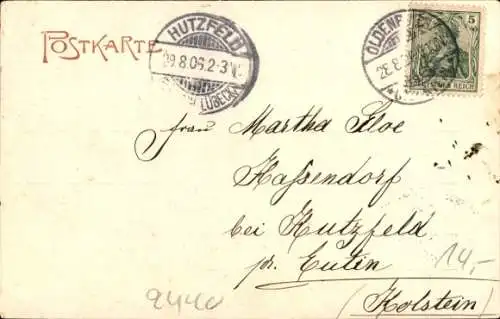 POSTKARTE
HUTZFELD
29.8.06.2-3N.
LÜBECK
OLDENB
5
DEUTSCHES REICH
Frau Martha Kloe
Hassendorf
bei Hutzfeld
pr. Eutin
(Holstein)
14,-